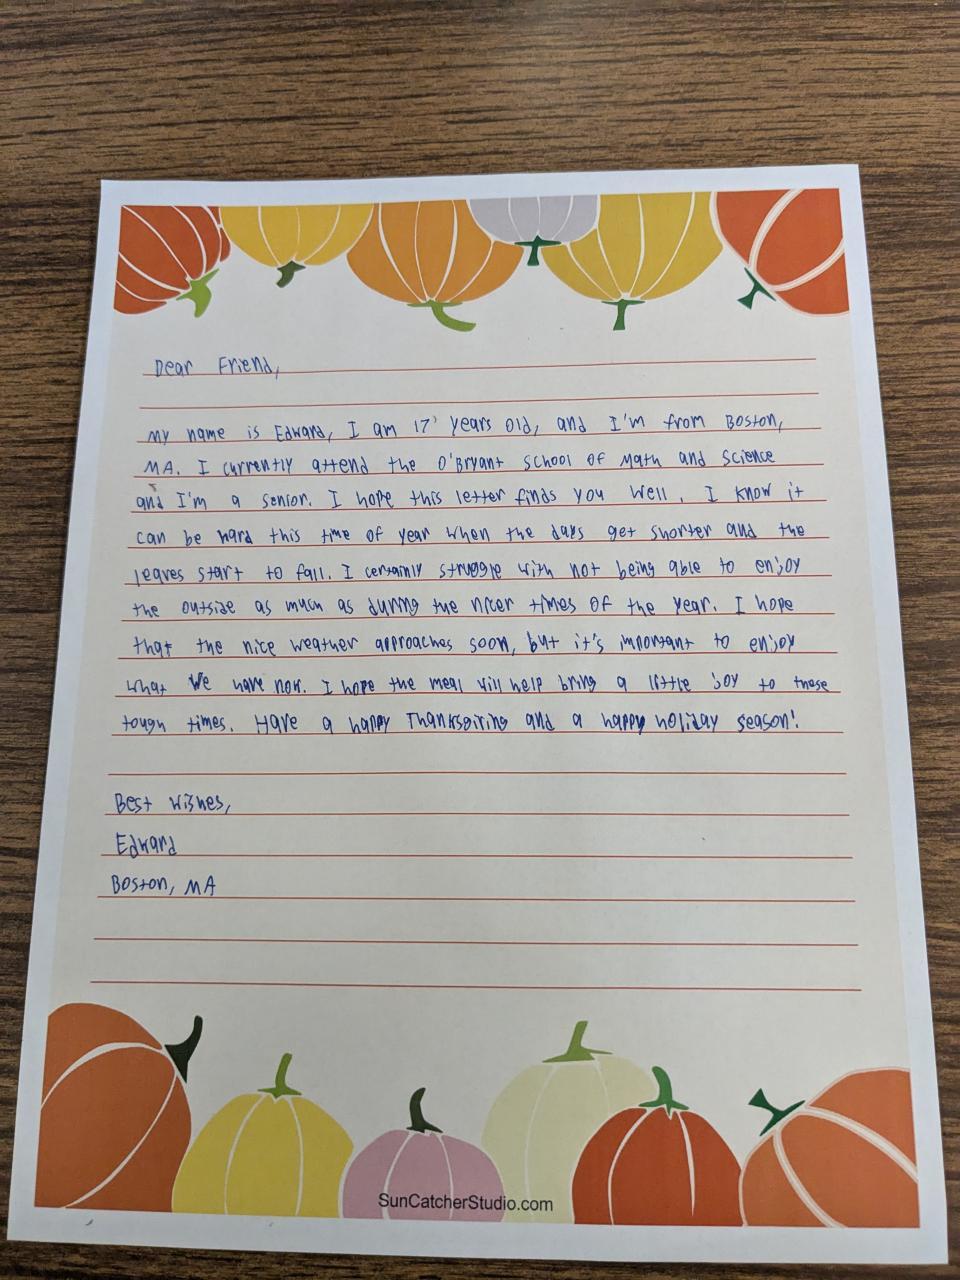 Dear Friend,
My name is Edward, I am 17 years old, and I'm from Boston,
MA. I currently attend the O'Bryant School of Math and Science
and I'm a senior. I hope this letter finds you well. I know it
can be hard this time of year when the days get shorter and the
leaves start to fall. I certainly struggle with not being able to enjoy
the outside as much as during the nicer times of the year. I hope
that the nice weather approaches soon, but it's important to enjoy
what we have now. I hope the meal will help bring a little joy to these
tough times. Have a happy Thanksgiving and a happy holiday season!
Best wishes,
Edward
Boston, MA
SunCatcherStudio.com